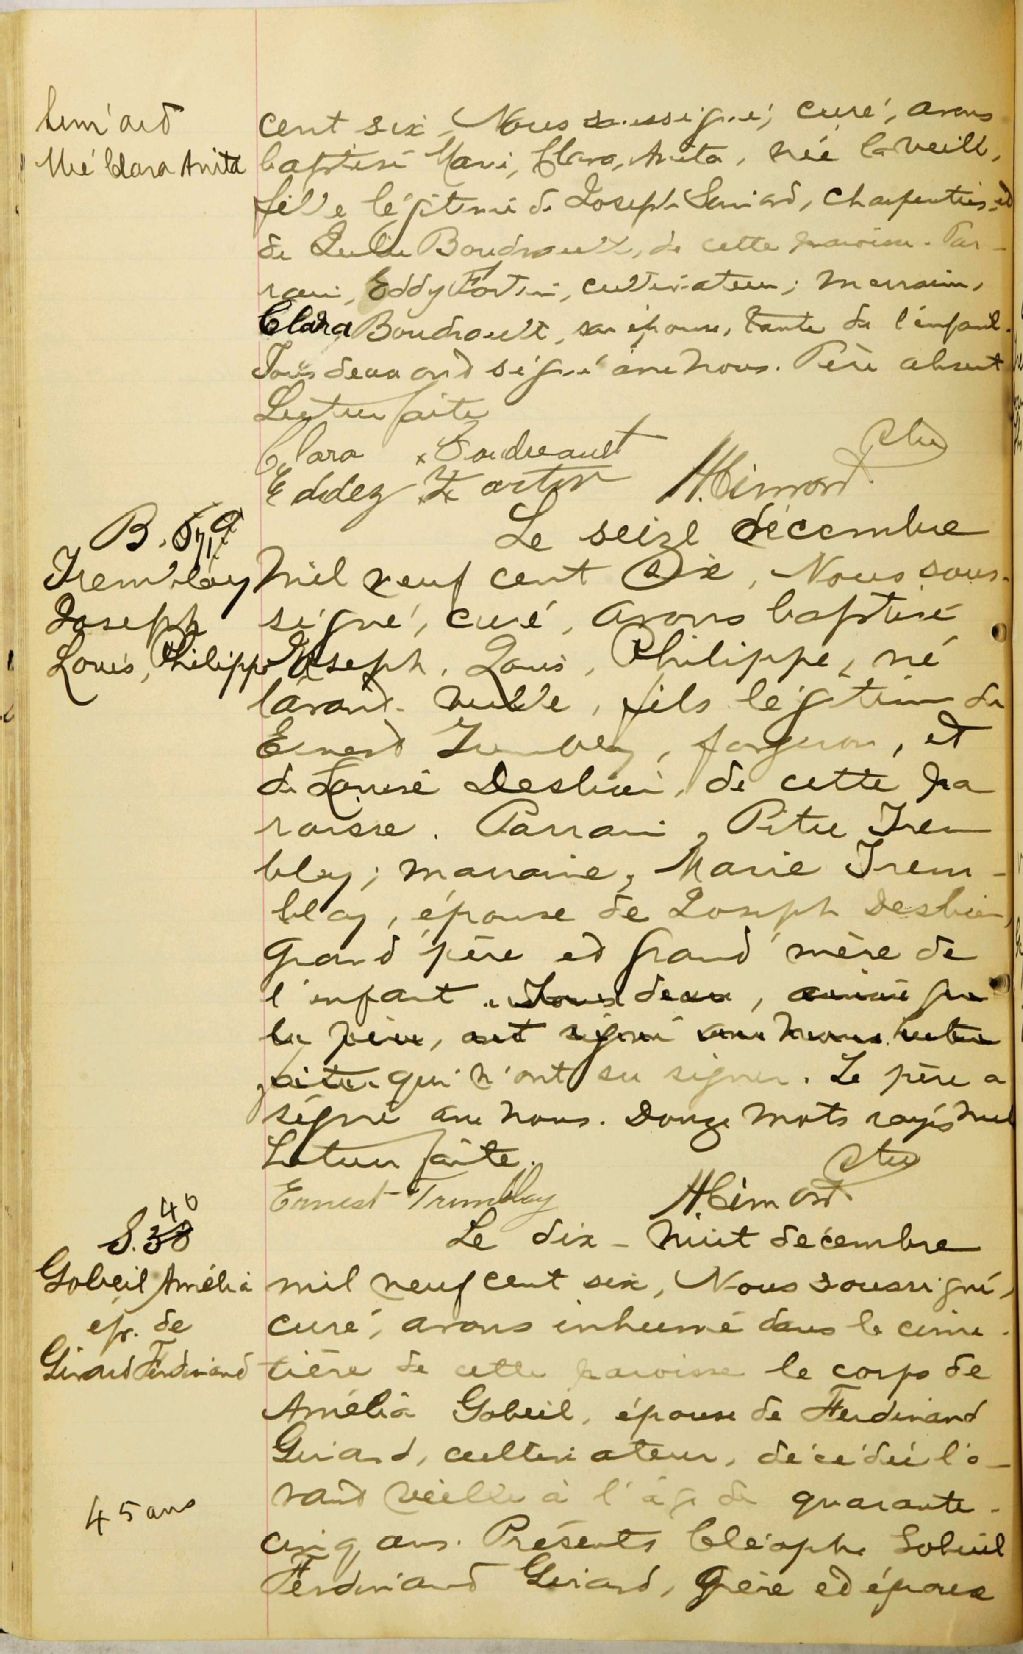 Simard
Mie Clara Anita
cent six, Nous soussigné, curé, avons
baptisé Marie, Clara, Anita, née la veille,
fille légitime de Joseph Simard, charpentier et
de Boudreault, de cette paroisse. Par-
rain, Eddy Fortin, cultivateur; marraine,
Clara Boudreault, son épouse, tante de l'enfant.
Tous deux ont signé avec nous. Père absent
Lecture faite
Clara Boudreault
Eddez Fortin H. Cimon Ptre
B. 
Tremblay
Joseph
Louis, Philippe
Le seize décembre
mil neuf cent six, Nous sous-
signé, curé, avons baptisé
Joseph, Louis, Philippe, né
l'avant-veille, fils légitime de
Ernest Tremblay, forgeron, et
de Louise Desbiens, de cette pa
roisse. Parrain, Pitre Trem
blay; marraine, Marie Trem-
blay, épouse de Joseph Desbiens,
grand'père et grand'mère de
l'enfant. Tous deux, ainsi que
le père, ont signé avec nous. Lecture
faite. qui n'ont su signer. Le père a
signé avec nous. Douze mots rayés nuls
Lecture faite.
Ernest Tremblay H. Cimon Ptre
S. 38 40
Gobeil Amélia
ép. de
Girard Ferdinand
45 ans
Le dix-huit décembre
mil neuf cent six, Nous soussigné,
curé, avons inhumé dans le cime-
tière de cette paroisse le corps de
Amélia Gobeil, épouse de Ferdinand
Girard, cultivateur, décédée l'a-
vant veille à l'âge de quarante-
cinq ans. Présents Cléophe Gobeil
Ferdinand Girard, frère et époux